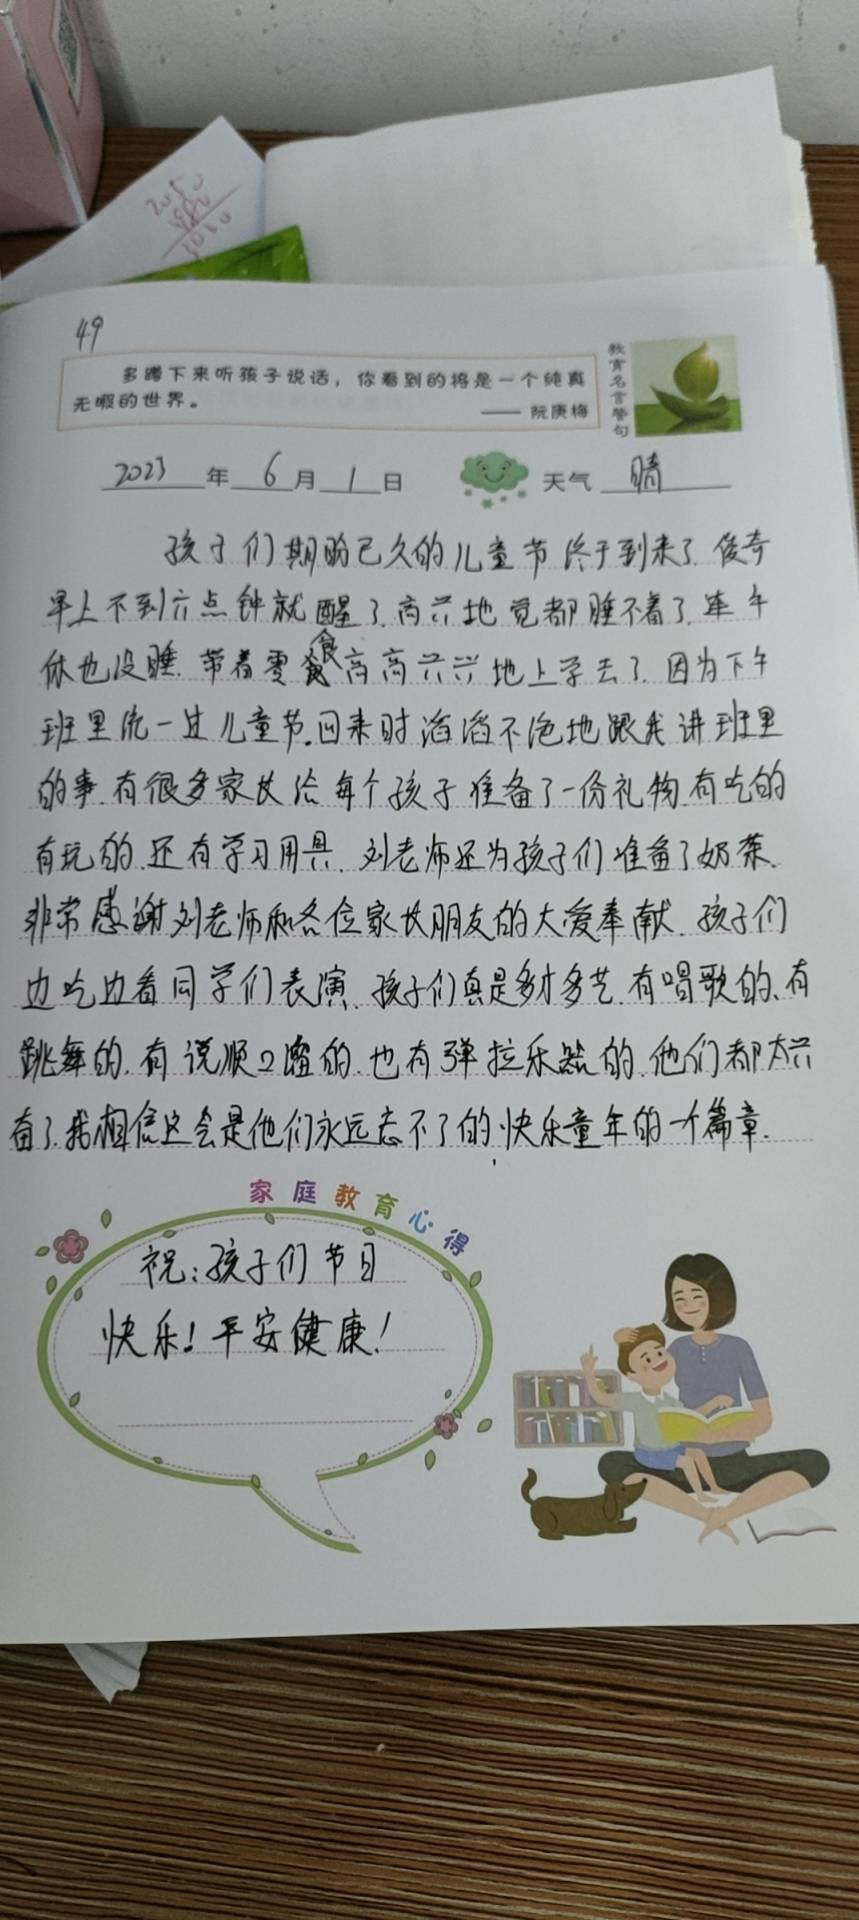 2050
49
多蹲下来听孩子说话，你看到的将是一个纯真
无暇的世界。
—— 阮庚梅
教育名言警句
2023年6月1日
天气 晴
孩子们期盼已久的儿童节终于到来了.俊奇
早上不到六点钟就醒了.高兴地觉都睡不着了.连午
休也没睡.带着零食高高兴兴地上学去了.因为下午
班里统一过儿童节.回来时滔滔不绝地跟我讲班里
的事.有很多家长给每个孩子准备了一份礼物.有吃的
有玩的.还有学习用具.刘老师还为孩子们准备了奶茶.
非常感谢刘老师和各位家长朋友的大爱奉献.孩子们
边吃边看同学们表演.孩子们真是多才多艺.有唱歌的、有
跳舞的.有说顺口溜的.也有弹拉乐器的.他们都太兴
奋了.我相信这会是他们永远忘不了的快乐童年的一个篇章.
家庭教育心得
祝:孩子们节日
快乐!平安健康!